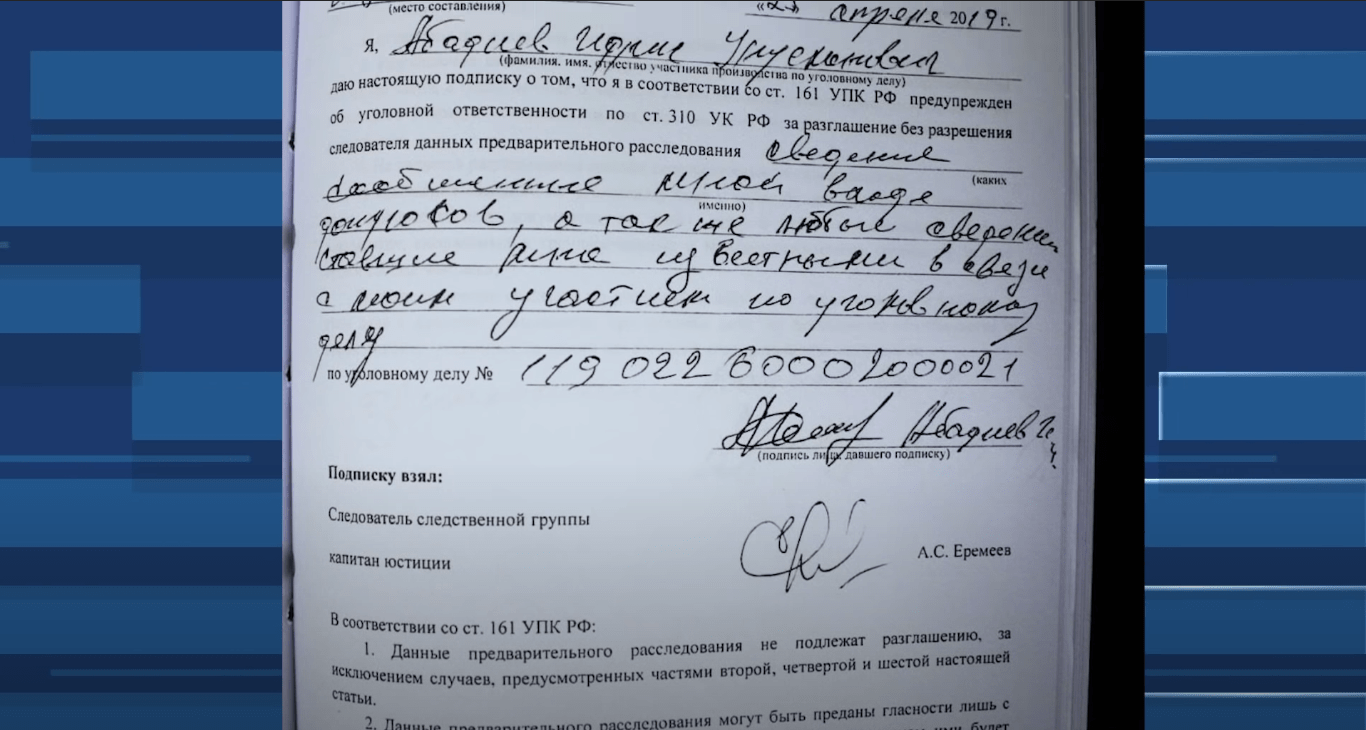 (место составления)
апреля 2019 г.
Я, Абадиев Идрис
(фамилия, имя, отчество участника производства по уголовному делу)
даю настоящую подписку о том, что я в соответствии со ст. 161 УПК РФ предупрежден
об уголовной ответственности по ст. 310 УК РФ за разглашение без разрешения
следователя данных предварительного расследования сведения
(каких
сообщенные мной в ходе
именно)
допросов, а так же любые сведения
ставшие мне известными в связи
с моим участием по уголовному
делу
по уголовному делу № 11902260002000021
Абадиев И.
(подпись лица, давшего подписку)
Подписку взял:
Следователь следственной группы
капитан юстиции
А.С. Еремеев
В соответствии со ст. 161 УПК РФ:
1. Данные предварительного расследования не подлежат разглашению, за
исключением случаев, предусмотренных частями второй, четвертой и шестой настоящей
статьи.
2. Данные предварительного расследования могут быть преданы гласности лишь с
будет